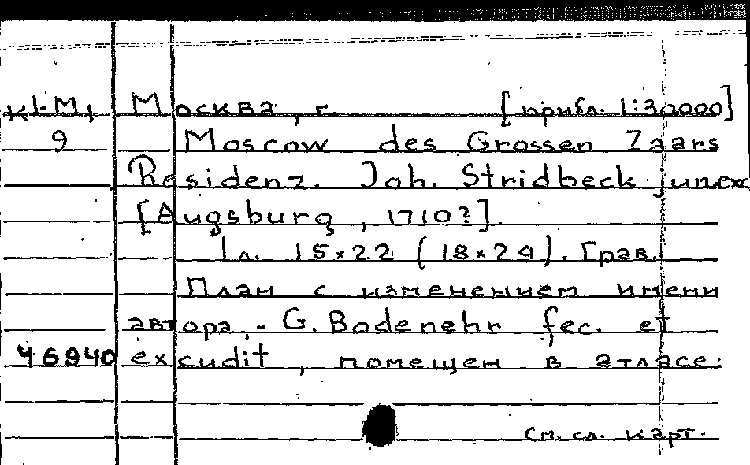 К1-М1 Москва, г. [прибл. 1:30000]
9 Moscow des Grossen Zaars
Residenz. Joh. Stridbeck junex
[Augsburg, 1710?].
1 л. 15×22 (18×24). Грав.
План с изменением имени
автора, - G. Bodenehr fec. et
46940 excudit, помещен в атласе:
см. сл. карт.